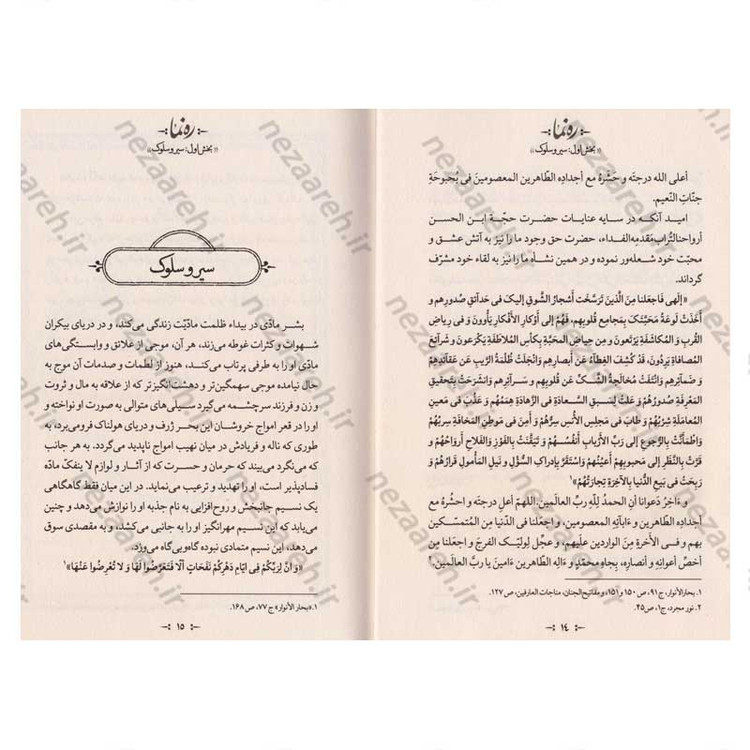 ره نما
«بخش اول: سیر و سلوک»
أعلی الله درجتَه و حَشَرَهُ مع أجدادِه الطّاهرین المعصومینَ فی بُحبوحَةِ
جنّاتِ النّعیم.
امید آنکه در سایه عنایات حضرت حجّة ابن الحسن
أرواحنا لتُراب مَقدمِه الفداء، حضرت حق وجود ما را نیز به آتش عشق و
محبّت خود شعله‌ور نموده و در همین نشأه ما را نیز به لقاء خود مشرّف
گرداند.
«إلَهی فَاجعَلنا مِنَ الَّذینَ تَرَسَّخَت أشجارُ الشَّوقِ إلَیکَ فی حَدآئقِ صُدورِهِم و
أخَذَت لَوعَةُ مَحَبَّتِکَ بِمَجامِعِ قُلوبِهِم، فَهُم إلَی أوکارِ الأفکارِ یَأوونَ وَ فی ریاضِ
القُربِ وَ المُکاشَفَةِ یَرتَعونَ وَ مِن حیاضِ المَحَبَّةِ بِکَأسِ المُلاطَفَةِ یَکرَعونَ وَ شَرآئعَ
المُصافاةِ یَرِدُونَ، قَد کُشِفَ الغِطآءُ عَن أبصارِهِم وَ انجَلَت ظُلمَةُ الرَّیبِ عَن عَقآئدِهِم
و ضَمآئرِهِم وَ انتَفَت مُخالَجَةُ الشَّکِّ عَن قُلوبِهِم و سَرآئرِهِم وَ انشَرَحَت بِتَحقیقِ
المَعرِفَةِ صُدورُهُم وَ عَلَت لِسَبقِ السَّعادَةِ فی الزَّهادَةِ هِمَمُهُم وَ عَذُبَ فی مَعینِ
المُعامَلَةِ شِربُهُم وَ طابَ فی مَجلِسِ الأُنسِ سِرُّهُم وَ أَمِنَ فی مَوطِنِ المَخافَةِ سِربُهُم
وَ اطمَأنَّت بِالرُّجوعِ إلَی رَبِّ الأربابِ أنفُسُهُم وَ تَیَقَّنَت بِالفَوزِ وَ الفَلاحِ أرواحُهُم و
قَرَّت بِالنَّظَرِ إلَی مَحبوبِهِم أعیُنُهُم وَ استَقَرَّ بِإدراکِ السُّؤلِ و نَیلِ المَأمولِ قَرارُهُم وَ
رَبِحَت فی بَیعِ الدُّنیا بِالآخِرَةِ تِجارَتُهُم»۱
و ءَاخِرُ دَعوانا أنِ الحمدُ لِلّهِ ربِّ العالَمین. اللهمّ أعلِ درجتَه و احشُره مع
أجدادِه الطّاهرین و ءَابآئه المعصومین، و اجعَلنا فی الدّنیا مِن المُتمسّکین
بهم و فی الأخرةِ مِنَ الواردین علَیهِم، و عجِّل لِولیِّکَ الفرجَ و اجعَلنا مِن
أخصِّ أعوانِه و أنصارِه، بِجاهِ محمّدٍ و ءَالِه الطاهرین ءَامین یا ربَّ العالَمین.۲
۱. بحارالأنوار، ج۹۱، ص۱۵۰ و ۱۵۱، و مفاتیح الجنان، مناجات العارفین، ص۱۲۷.
۲. نور مجرد، ج۱، ص۴۵.
۱۴
ره نما
«بخش اول: سیر و سلوک»
سیر و سلوک
بشر مادّی در بیداء ظلمت مادّیّت زندگی می‌کند، و در دریای بیکران
شهوات و کثرات غوطه می‌زند، هر آن، موجی از علائق و وابستگی‌های
مادّی او را به طرفی پرتاب می‌کند، هنوز از لطمات و صدمات آن موج به
حال نیامده موجی سهمگین‌تر و دهشت‌انگیزتر که از علاقه به مال و ثروت
و زن و فرزند سرچشمه می‌گیرد سیلی‌های متوالی به صورت او نواخته و
او را در قعر امواج خروشان این بحر ژرف و دریای هولناک فرومی‌برد، به
طوری که ناله و فریادش در میان نهیب امواج ناپدید می‌گردد. به هر جانب
که می‌نگرد می‌بیند که حرمان و حسرت که از آثار و لوازم لا ینفکّ مادّه
فسادپذیر است، او را تهدید و ترعیب می‌نماید. در این میان فقط گاهگاهی
یک نسیم جانبخش و روح‌افزایی به نام جذبه او را نوازش می‌دهد و چنین
می‌یابد که این نسیم مهرانگیز او را به جانبی می‌کشد، و به مقصدی سوق
می‌دهد، این نسیم متمادی نبوده گاه‌وبی‌گاه می‌وزد.
«وَ انَّ لِرَبِّکُم فِی ایّامِ دَهْرِکُمْ نَفَحَاتٍ ألَا فَتَعَرَّضُوا لَهَا وَ لَا تُعْرِضُوا عَنْهَا»۱
۱. «بحار الأنوار» ج ۷۷، ص ۱۶۸.
۱۵
nezaareh.ir